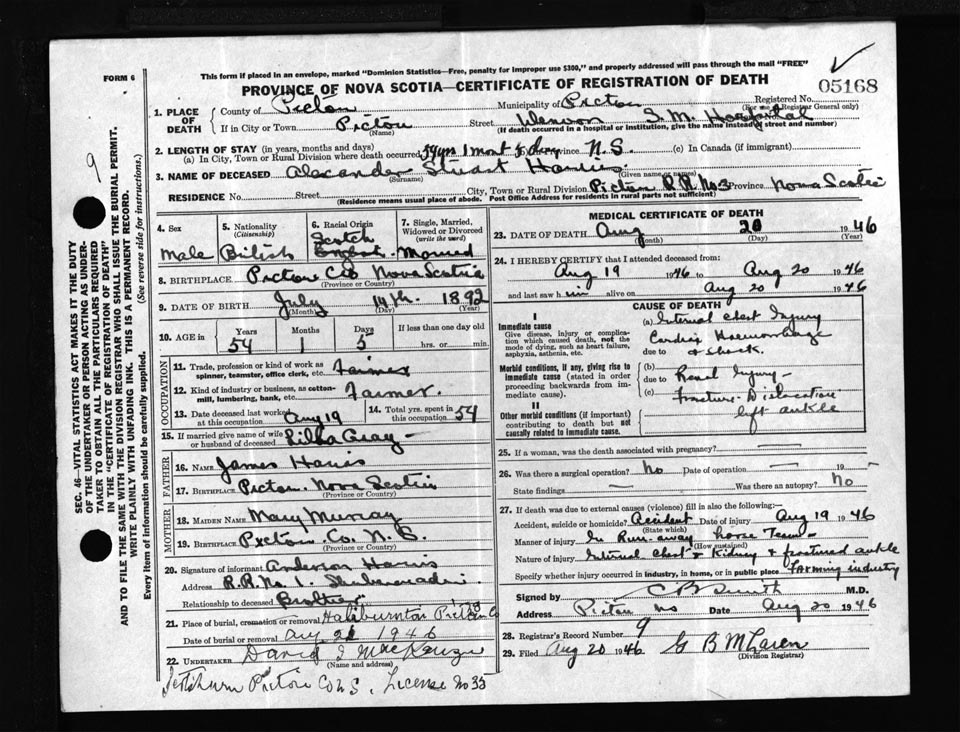 FORM 6
This form if placed in an envelope, marked "Dominion Statistics—Free, penalty for improper use $300," and properly addressed will pass through the mail "FREE"
PROVINCE OF NOVA SCOTIA—CERTIFICATE OF REGISTRATION OF DEATH
05168
Registered No.
(For use of Registrar General only)
1. PLACE OF DEATH
County of Pictou Municipality of Pictou
If in City or Town Pictou Street S. M. Hospital
(Name) (If death occurred in a hospital or institution, give the name instead of street and number)
2. LENGTH OF STAY (in years, months and days)
(a) In City, Town or Rural Division where death occurred 54 yrs 1 mont 5 days Province N.S. (c) In Canada (if immigrant)
3. NAME OF DECEASED Alexander Stuart Harris
(Surname) (Given name or names)
RESIDENCE No. Street City, Town or Rural Division Pictou R.R. No 3 Province Nova Scotia
(Residence means usual place of abode. Post Office Address for residents in rural parts not sufficient)
4. Sex
Male
5. Nationality (Citizenship)
British
6. Racial Origin
Scotch
7. Single, Married, Widowed or Divorced (write the word)
Married
8. BIRTHPLACE Pictou Co Nova Scotia
(Province or Country)
9. DATE OF BIRTH July 14th 1892
(Month) (Day) (Year)
10. AGE in Years Months Days If less than one day old
54 1 5 hrs. or min.
OCCUPATION
11. Trade, profession or kind of work as spinner, teamster, office clerk, etc. Farmer
12. Kind of industry or business, as cotton-mill, lumbering, bank, etc. Farmer.
13. Date deceased last worked at this occupation Aug 19
14. Total yrs. spent in this occupation 54
15. If married give name of wife or husband of deceased Gray
FATHER
16. NAME James Harris
17. BIRTHPLACE Pictou Nova Scotia
(Province or Country)
MOTHER
18. MAIDEN NAME Mary Murray
19. BIRTHPLACE Pictou Co. N. S.
(Province or Country)
20. Signature of informant Anderson Harris
Address R.R. No. 1.
Relationship to deceased Brother
21. Place of burial, cremation or removal Haliburnton Pictou Co
Date of burial or removal Aug 1946
22. UNDERTAKER David J MacKenzie
(Name and address)
Pictou Co N S. License No 35
MEDICAL CERTIFICATE OF DEATH
23. DATE OF DEATH Aug 20 1946
(Month) (Day) (Year)
24. I HEREBY CERTIFY that I attended deceased from
Aug 19 1946 to Aug 20 1946
and last saw him alive on Aug 20 1946
CAUSE OF DEATH
I
Immediate cause
Give disease, injury or complication which caused death, not the mode of dying, such as heart failure, asphyxia, asthenia, etc.
(a) Internal Chest Injury
Cardiac Haemorrhage
due to & Shock.
Morbid conditions, if any, giving rise to immediate cause (stated in order proceeding backwards from immediate cause).
(b)
due to Renal Injury—
(c) Fracture - Dislocation
left ankle
II
Other morbid conditions (if important) contributing to death but not causally related to immediate cause.
25. If a woman, was the death associated with pregnancy? —
26. Was there a surgical operation? No Date of operation — 19 -
State findings — Was there an autopsy? No
27. If death was due to external causes (violence) fill in also the following:
Accident, suicide or homicide? Accident Date of injury Aug 19 1946
(State which)
Manner of injury In Run-away horse Team—
(How sustained)
Nature of injury Internal Chest & Kidney & fractured ankle
Specify whether injury occurred in industry, in home, or in public place Farming industry
Signed by C B Smith M.D.
Address Pictou Date Aug 20 1946
28. Registrar's Record Number 9
29. Filed Aug 20 1946 G B McLaren
(Division Registrar)
9
SEC. 46—VITAL STATISTICS ACT MAKES IT THE DUTY
OF THE UNDERTAKER OR PERSON ACTING AS UNDER-
TAKER TO OBTAIN ALL THE PARTICULARS REQUIRED
IN THE "CERTIFICATE OF REGISTRATION OF DEATH"
AND TO FILE THE SAME WITH THE DIVISION REGISTRAR WHO SHALL ISSUE THE BURIAL PERMIT.
WRITE PLAINLY WITH UNFADING INK. THIS IS A PERMANENT RECORD.
Every item of information should be carefully supplied. (See reverse side for instructions.)